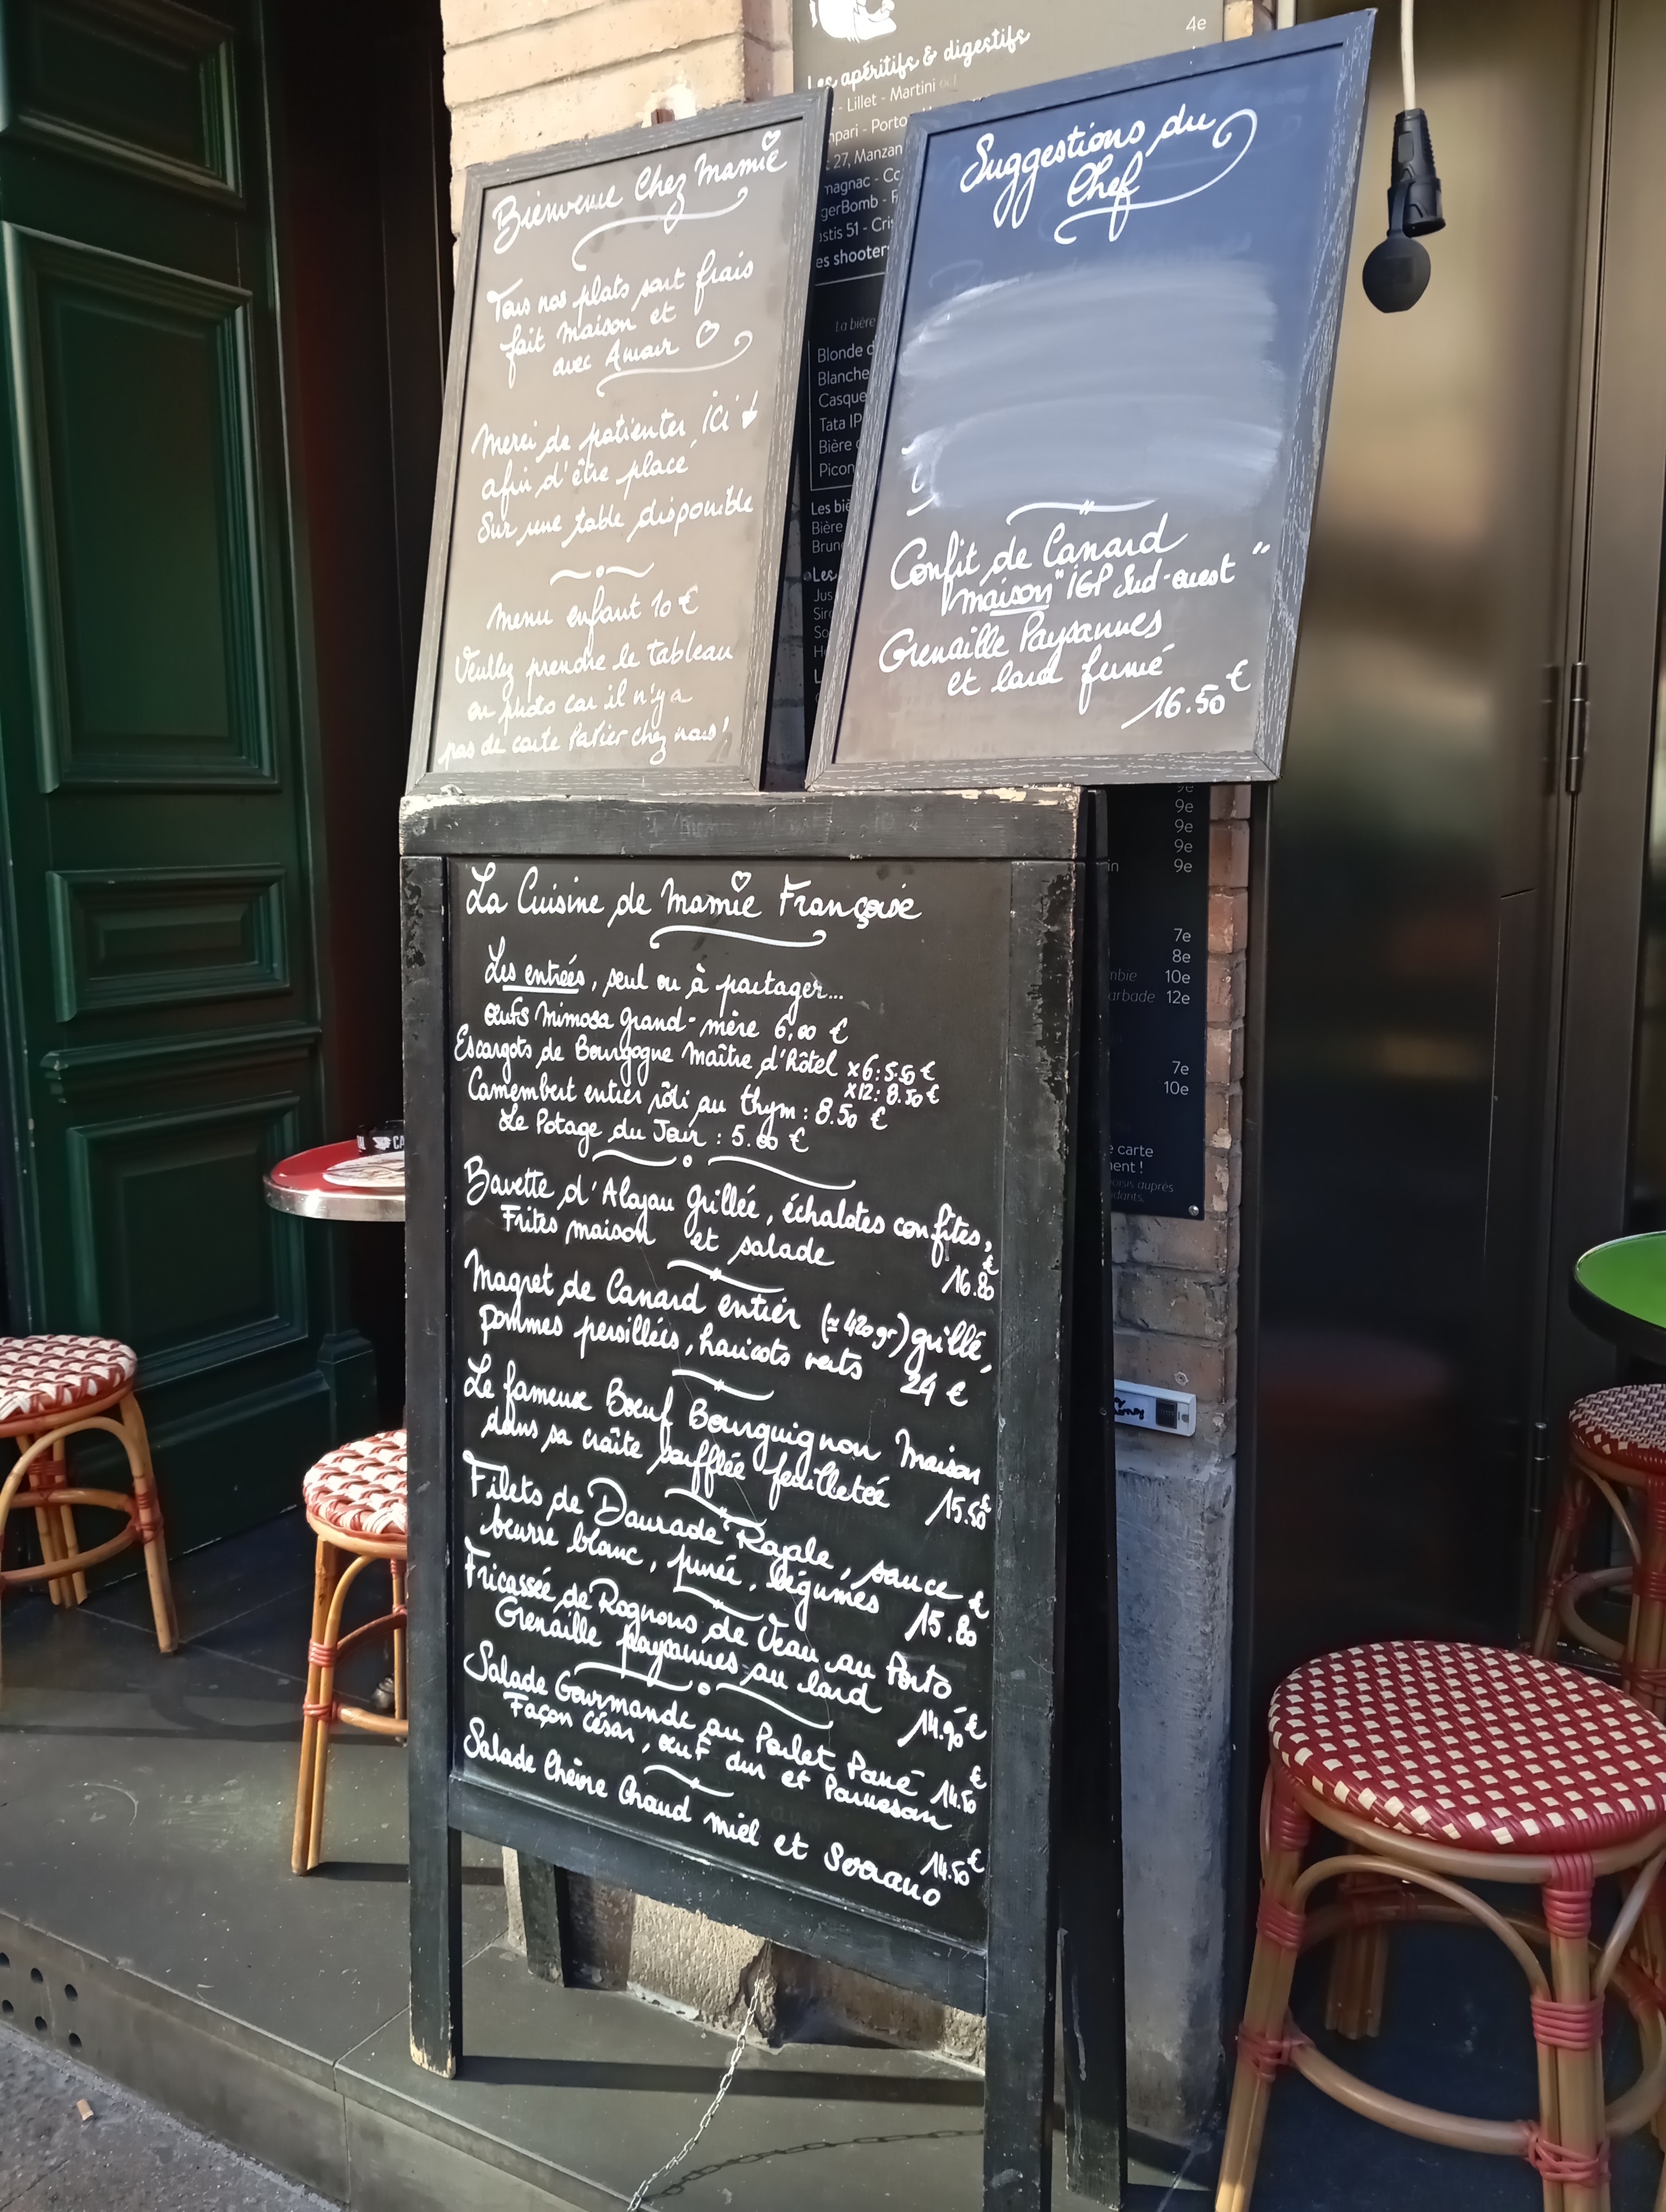 Bienvenue Chez Mamie
Tous nos plats sont frais
fait maison et
avec Amour
Merci de patienter ici
afin d'être placé
Sur une table disponible
Menu enfant 10 €
Veuillez prendre le tableau
en photo car il n'y a
pas de carte Papier chez nous!
Suggestions du
Chef
Confit de Canard
maison "IGP Sud-ouest"
Grenaille Paysannes
et lard fumé
16.50 €
La Cuisine de Mamie Françoise
Les entrées, seul ou à partager...
œufs Mimosa grand-mère 6.00 €
Escargots de Bourgogne Maître d'hôtel x6: 5.50 €
x12: 8.50 €
Camembert entier rôti au thym: 8.50 €
Le Potage du Jour : 5.00 €
Bavette d'Aloyau grillée, échalotes confites,
Frites maison et salade 16.80 €
Magret de Canard entier (≃ 420 gr) grillé,
pommes persillées, haricots verts 24 €
Le fameux Bœuf Bourguignon Maison
dans sa croûte soufflée feuilletée 15.50 €
Filets de Daurade Royale, sauce
beurre blanc, purée, légumes 15.80 €
Fricassée de Rognons de Veau au Porto
Grenaille paysannes au lard 14.90 €
Salade Gourmande au Poulet Pané 14.50 €
Façon César, œuf dur et Parmesan
Salade Chèvre Chaud miel et Serrano 14.50 €
4e
Les apéritifs & digestifs
- Lillet - Martini
- Porto
27, Manzan
51 - Cris
shooters
La bière
Blonde d
Blanche
Casque
Tata IP
Bière
Picon
Les biè
Bière
Brun
Les
9e
9e
9e
9e
7e
8e
10e
arbade 12e
7e
10e
carte
auprès